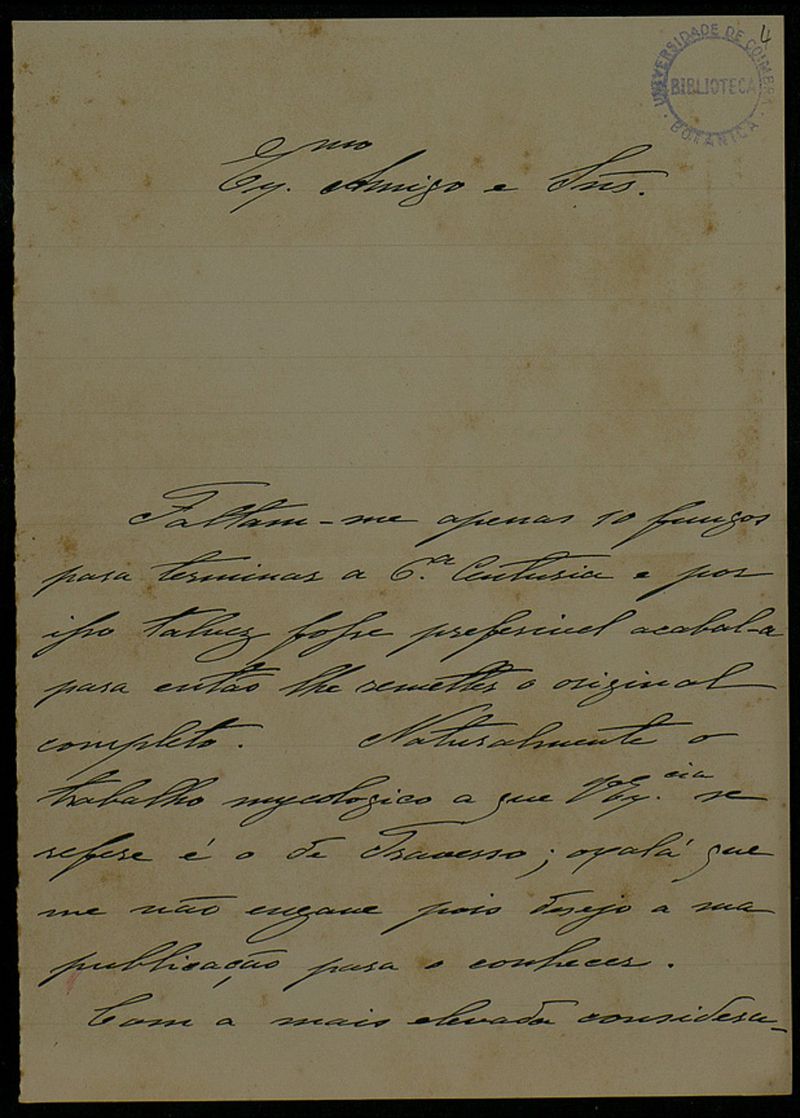 4
UNIVERSIDADE DE COIMBRA
BIBLIOTECA
BOTANICA
Ex.mo Amigo e Snr.
Faltam-me apenas 10 fungos
para terminar a 6.a Centuria e por
isso talvez fosse preferivel acabal-a
para então lhe remetter o original
completo. Naturalmente o
trabalho mycologico a que V. Ex.cia se
refere é o de Traverso; oxalá que
me não engane pois desejo a sua
publicação para o conhecer.
Com a mais elevada considera-